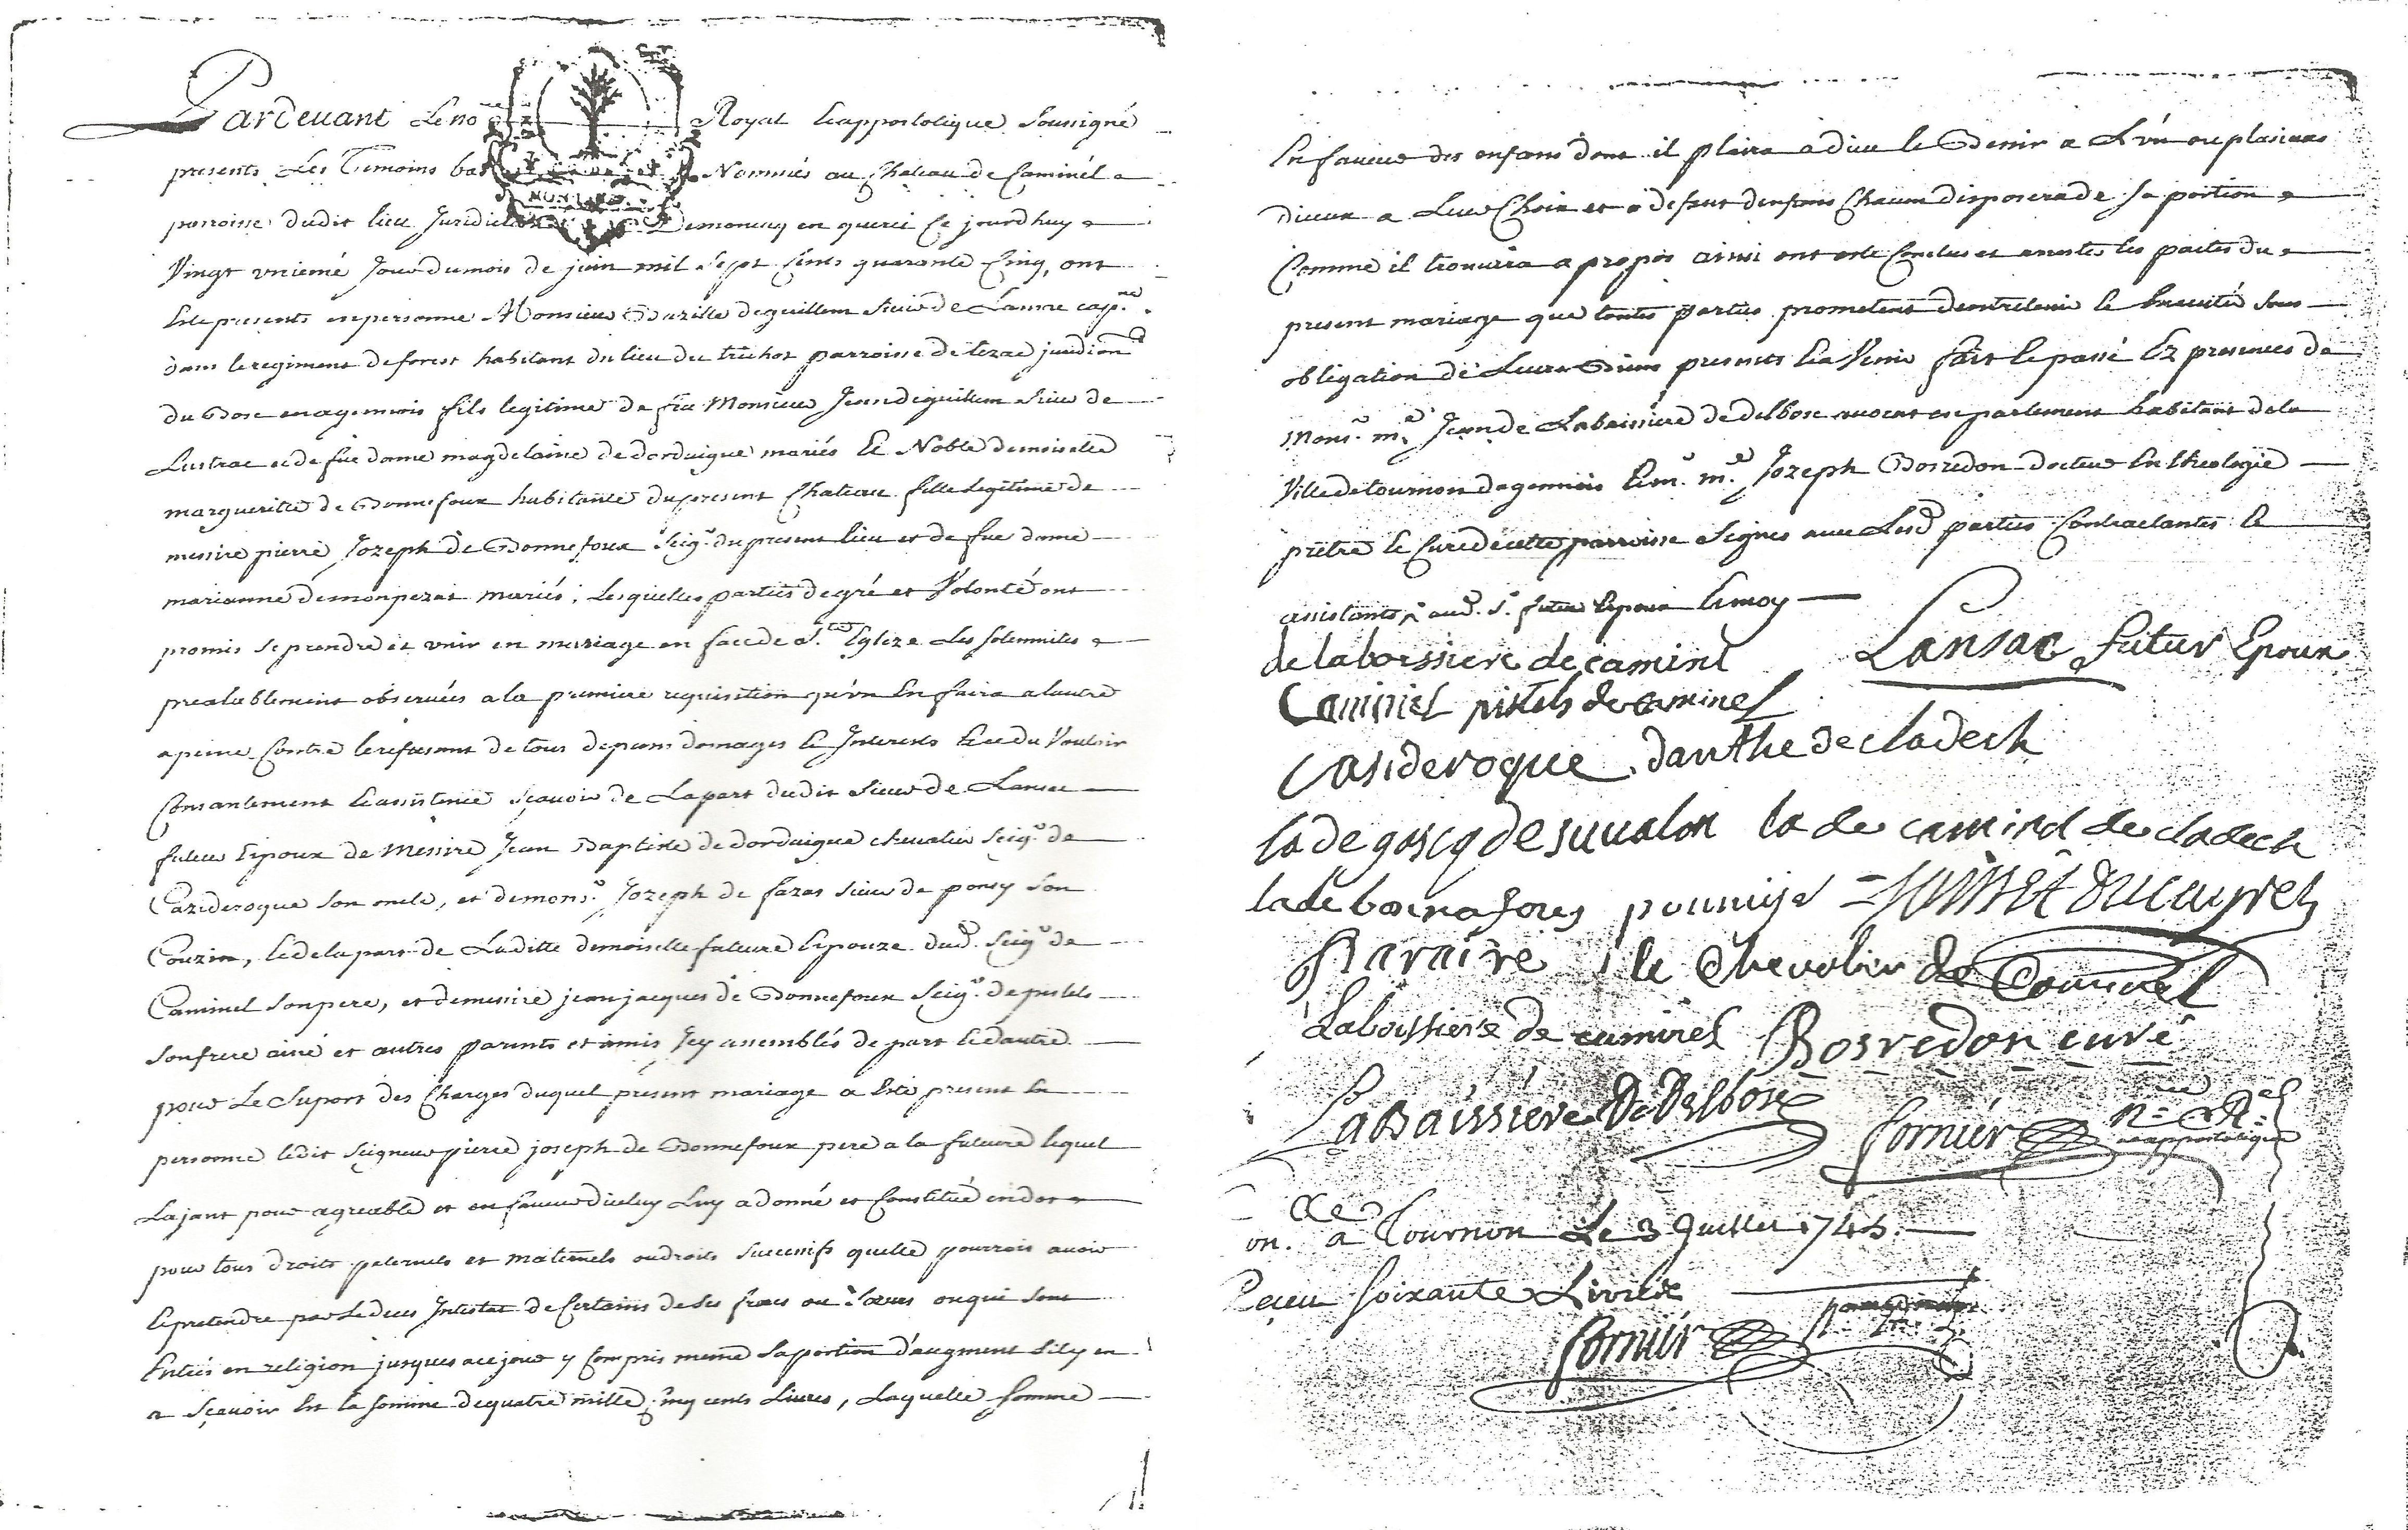 Pardevant Le no Royal Eapportolique Soussigné
presents Les Temoins bas Nommés au Chateau de Caminel
parroisse dudit lieu Juridiction Demoncuq en querci Ce jourdhuy
Vingt unieme Jour du mois de juin mil Sept Cents quarante Cinq, ont
Este presents en personne Monsieur Bazille deguillem Sieur de Lansac capne.
dans le regiment de forest habitant du lieu du parroisse de juridion
du Bosc enagennois fils legitime de feu Monsieur Jean deguillem Sieur de
Lustrac et de fue dame magdelaine de dordaigue mariés Et Noble demoiselle
margueritte de Bonnefoux habitante du present Chateau fille legitime de
messire pierre Jozeph de Bonnefoux Seigr. du present lieu et de fue dame
marianne demonpezat mariés ; Lesquelles parties de gré et Volonté ont
promis se prendre et unir en mariage en face de Ste. Eglize Les solemnites
prealablement observées a la premiere requisition qu'un En faira a lautre
a peine Contre le refusant de tous depans domages Et Interests Et du Vouloir
Consantement Eassistence Sçavoir de La part dudit Sieur de Lansac
futur Epoux de Messire Jean Baptiste de dordaigue chevalier Seigr. de
Cazideroque son oncle, et de monsr. Jozeph de fazas sieur de poncy son
Couzin, Ede la part de Laditte demoiselle future Epouze dud. Seigr. de
Caminel son pere, et demessire jean jacques de Bonnefoux Seigr. de pistels
son frere ainé et autres parents et amis Icy assemblés de part Edautre
pour Le Suport des Charges duquel présent mariage a Esté present En
personne ledit Seigneur pierre joseph de Bonnefoux pere a la future lequel
Lajant pour agreable et en faveur dicelluy Luy a donné et Constitué en dot
pour tous droits paternels et maternels oudroits Successifs quelle pourroit avoir
Epretendre par le deces Intestat de Certains de ses freres ou Sœurs ou qui sont
Entrés en religion jusques ace jour y Compris meme La portion d'augment sil y en
a Sçavoir Est la somme dequatre mille Cinq cents Livres, Laquelle somme
En faveur des enfans dont il plaira a dieu le Benir a L'un ou plusieurs
Dieux a Leur Choix et a defaut denfans Chacun disposera de sa portion
Comme il trouvera apropos ainsi ont este Conclus et arrestés les pactes du
present mariage que toutes parties prometent dentretenir Et Executer sous
obligation de Leurs Biens presents Ea Venir fait Et passé Ez presences de
Monsr. me. Jean de Labaissiere de delbosc avocat en parlement habitant de la
Ville de tournon dagennois Emr. me. Jozeph Bosredon docteur En theologie
prètre Et Curé de cette parroisse Signés avec Lesd. parties Contractantes Et
assistants, aud. Sr. futur Epoux Emoy
de laboissiere de caminel Lansac futur Epoux
Caminel pistels de caminel
Casideroque danthe de cladech
la de gascq de suvalon la de caminel de cladech
la de
Baraire le Chevalier de Caminel
Laboissiere de caminel Bosredon curé
LaBaissiere De Delbosc Fornier Nre. Ral. eapportolique
on. a Tournon Le 3 Juillet 1745.
Reçeu Soixante Livres
Fornier